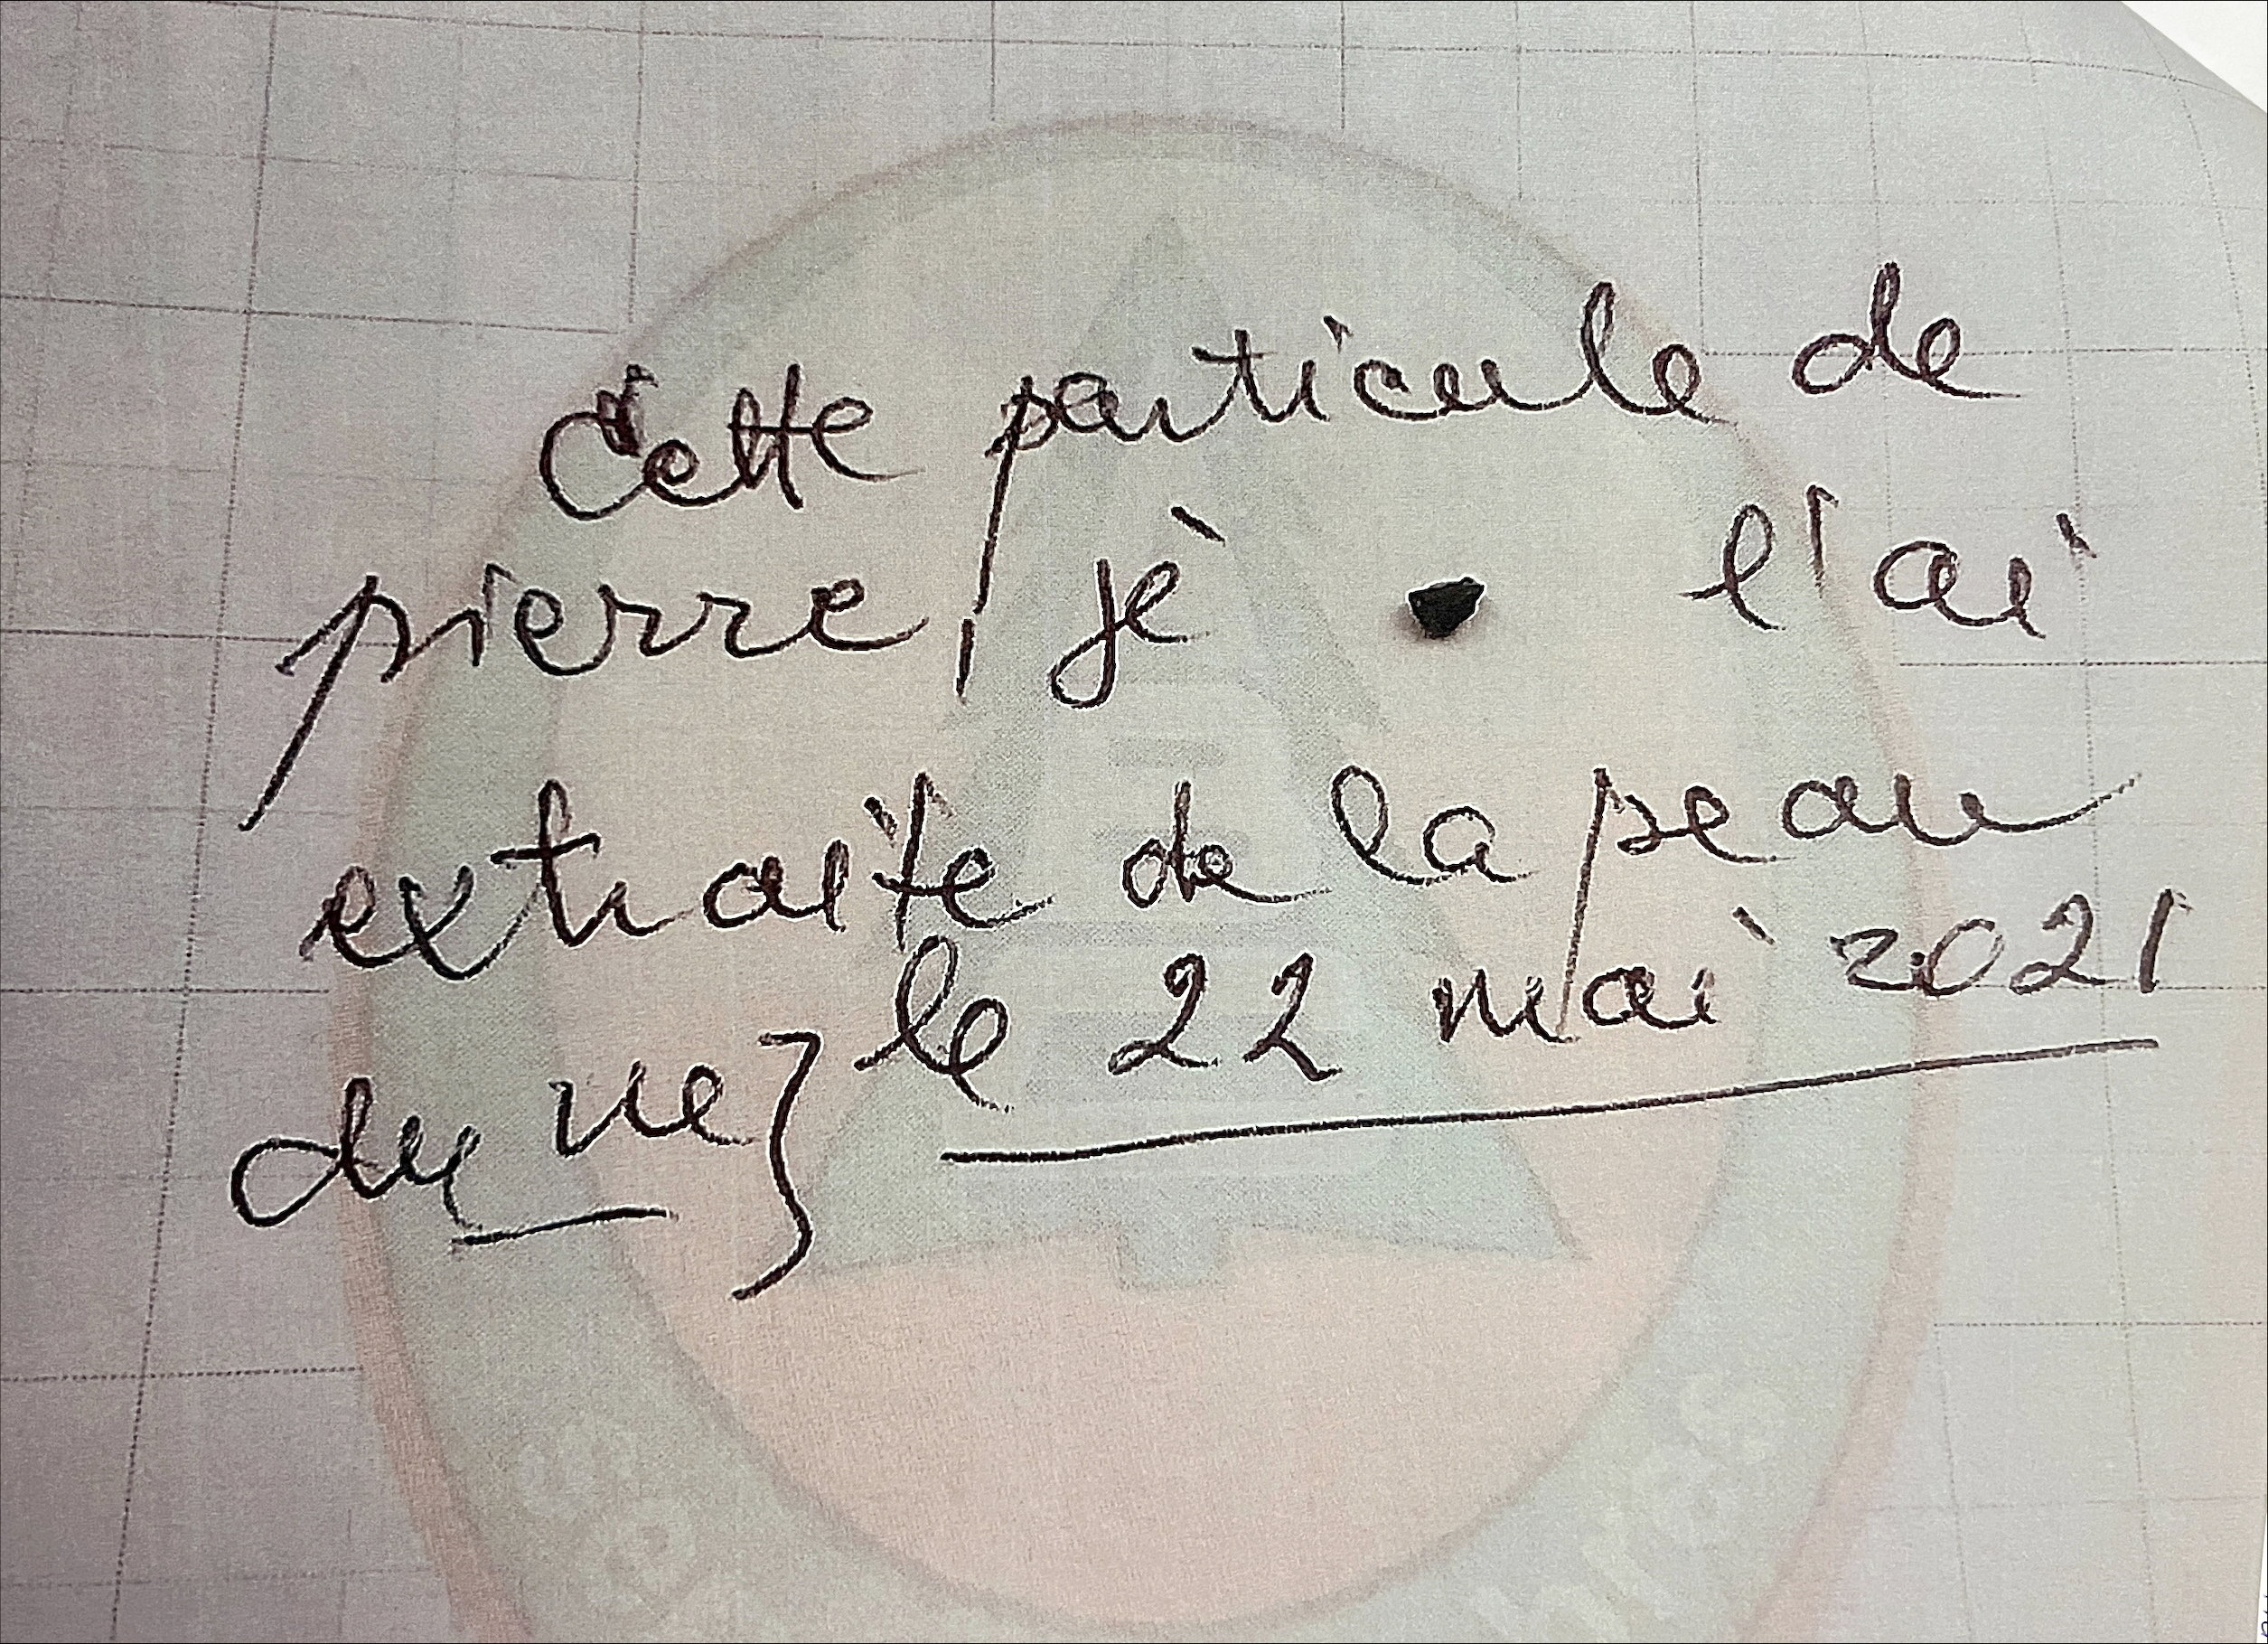 Cette particule de
pierre, je l'ai
extraite de la peau
du nez le 22 mai 2021